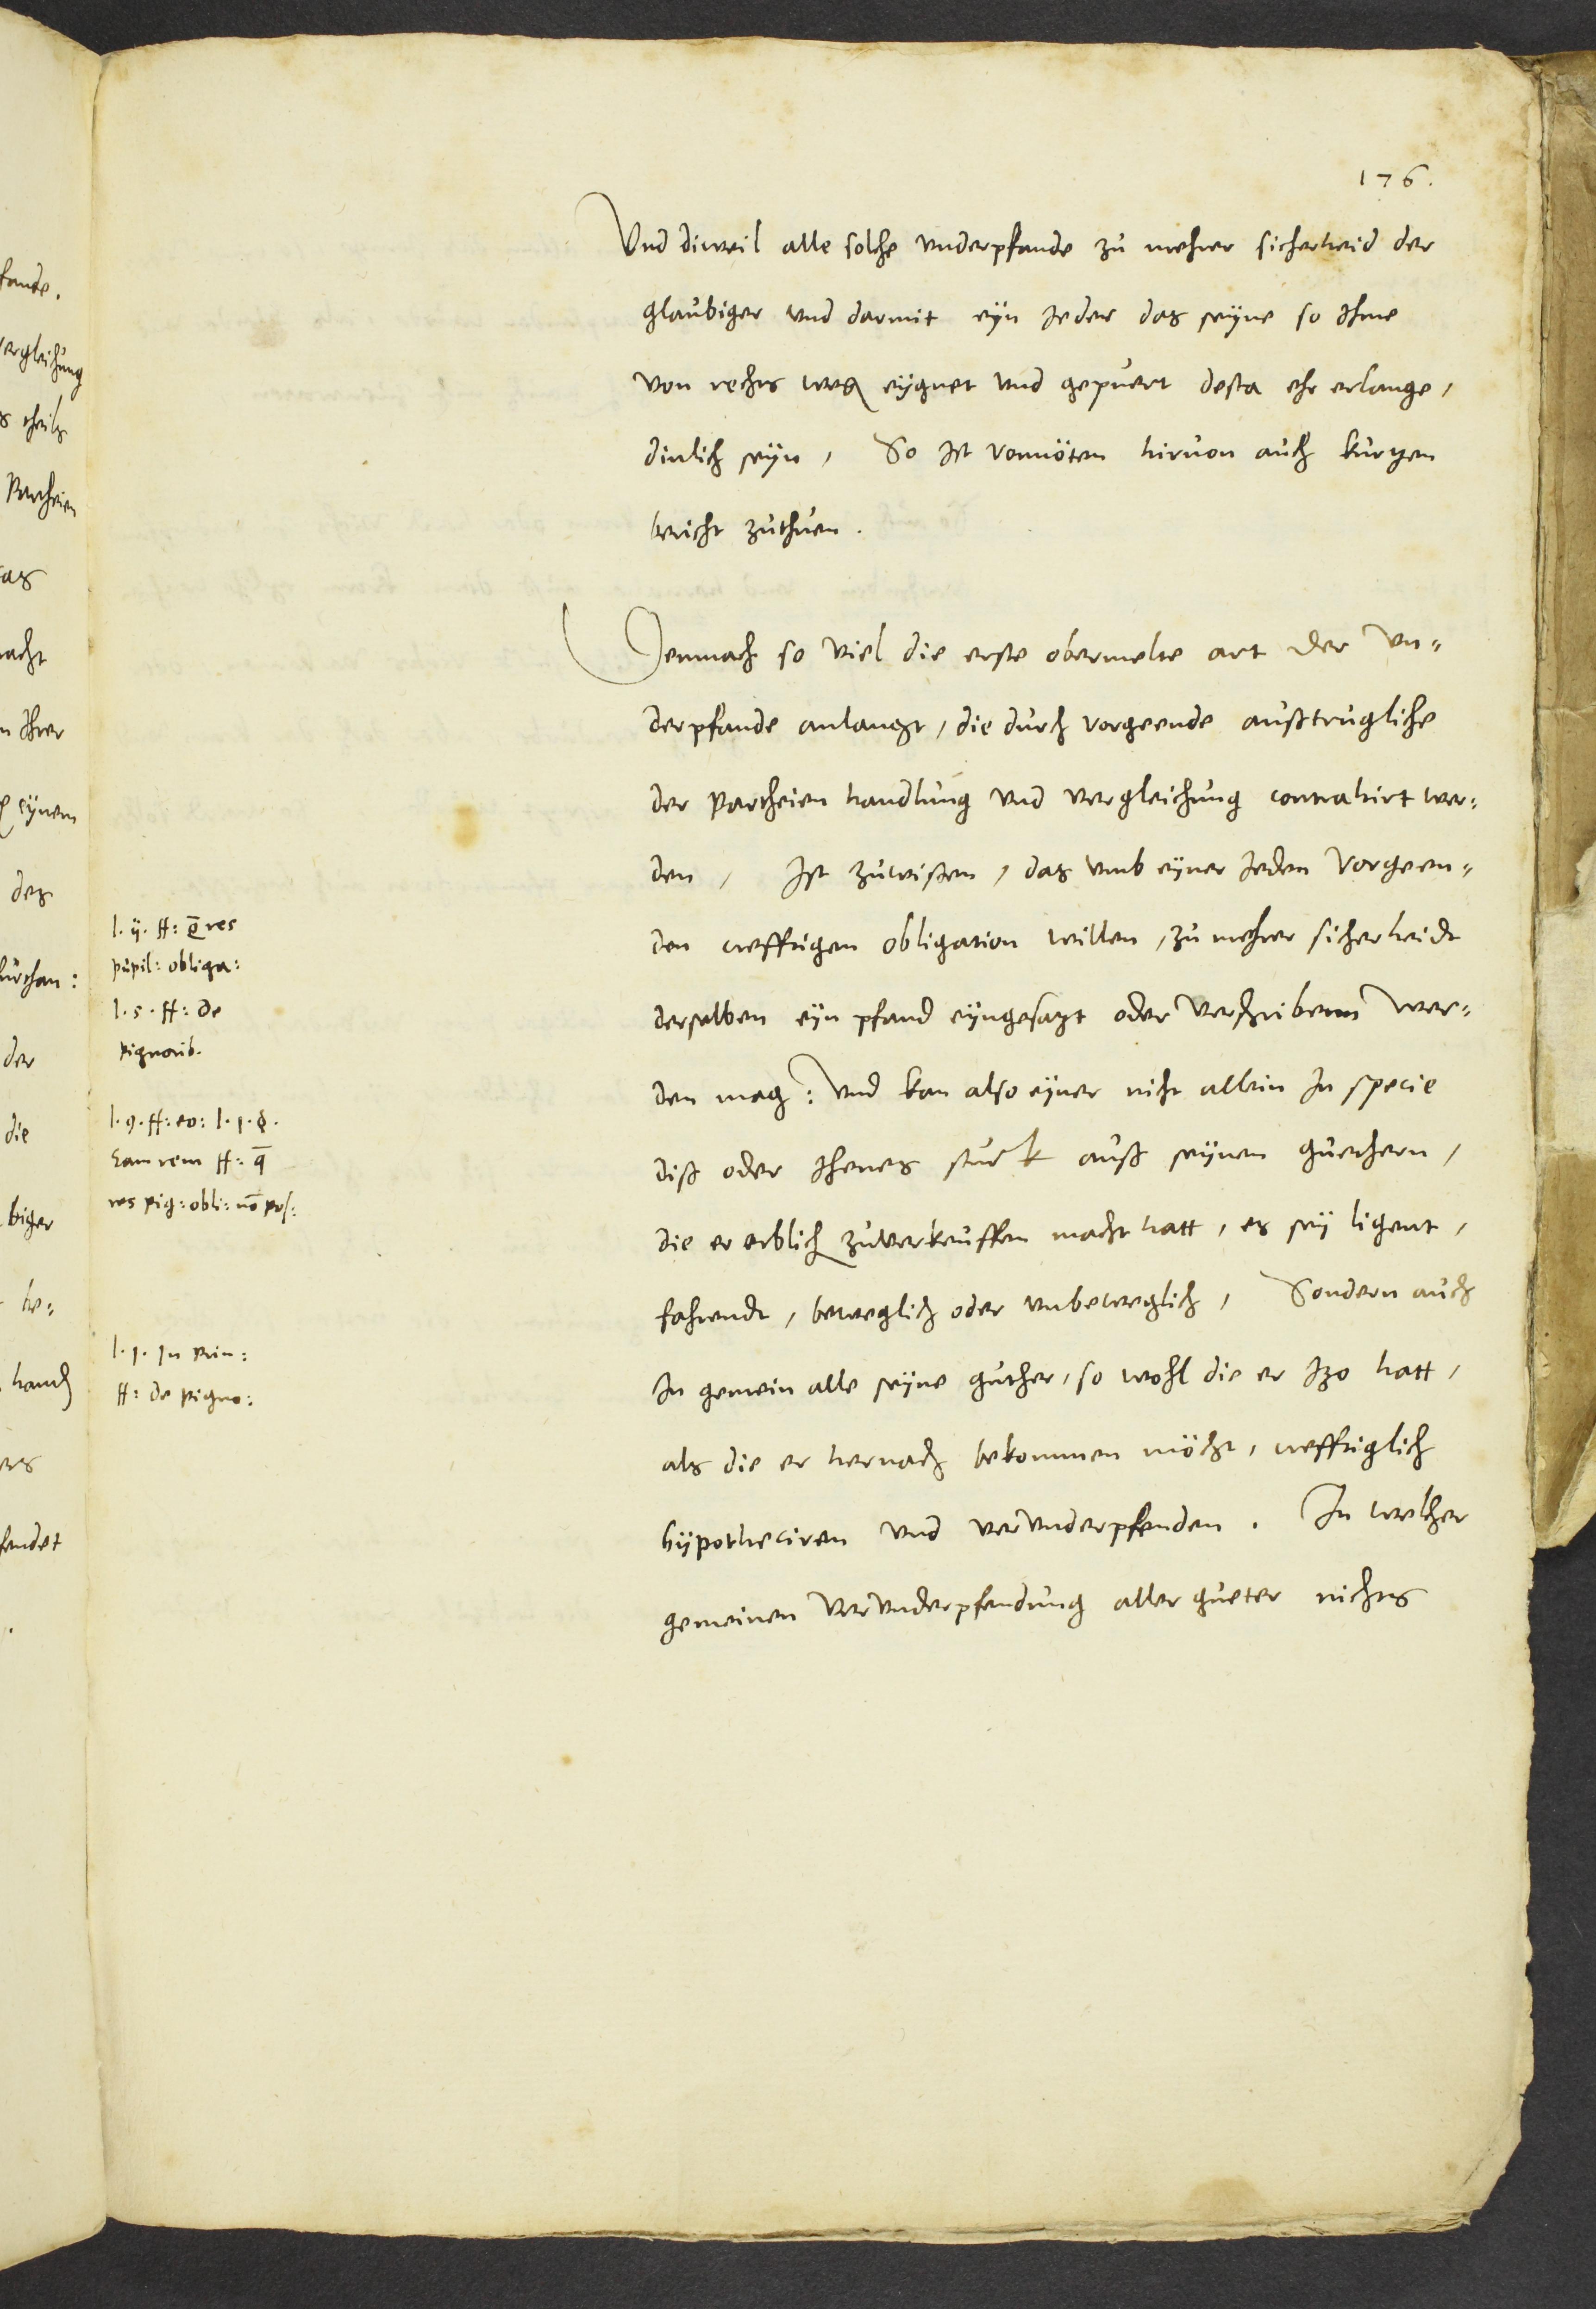 176.
Vnd diweil alle solche vnderpfande zu mehrer sicherheid der
glaubiger vnd darmit eÿn Jeder das seÿne so Ihme
von rechts weg eÿgnet vnd gepuert desta ehr erlange,
dinlich seÿn, So Ist vonnöten hirvon auch kurtzen
bericht zuthuen.
Demnach so viel die erste obermelte art der vn=
derpfande anlangt, die durch vorgeende außtrugliche
der Partheien handlung vnd vergleichung contrahirt wer=
den, Ist zuwissen, das vmb eÿner Jeden vorgeen=
den creffticgen obligation willen, zu mehrer sicherheidt
derselben eÿn pfand eÿngesazt oder verschribenn wer=
den mag: Vnd kan also eÿner nicht allein In specie
diß oder Jhenes stuck auß seÿnen guethern,
die er erblich zuverkeuffen macht hatt, es seÿ ligent,
fahrendt, beweglich oder vnbeweglich, Sondern auch
In gemein alle seÿne guther, so wohl die er Izo hatt,
als die er hernach bekommen möcht, crefftiglich
hÿpotheciren vnd vervnderpfenden. In welcher
gemeinen vervnderpfendung aller gueter nichts
l. ij. ff: q̄ res
pupil: obliga:
l. 5. ff: de
pignorib.
l. 9. ff: eo: l. 1. §.
Eam rem ff: q̄
res pig: obli: nō pos:
l. 1. In Prin:
ff: de pigno:
fande.
vergleichung
Partheien
Ihrer
eÿnem
des
der
die
biger
be=
fendet